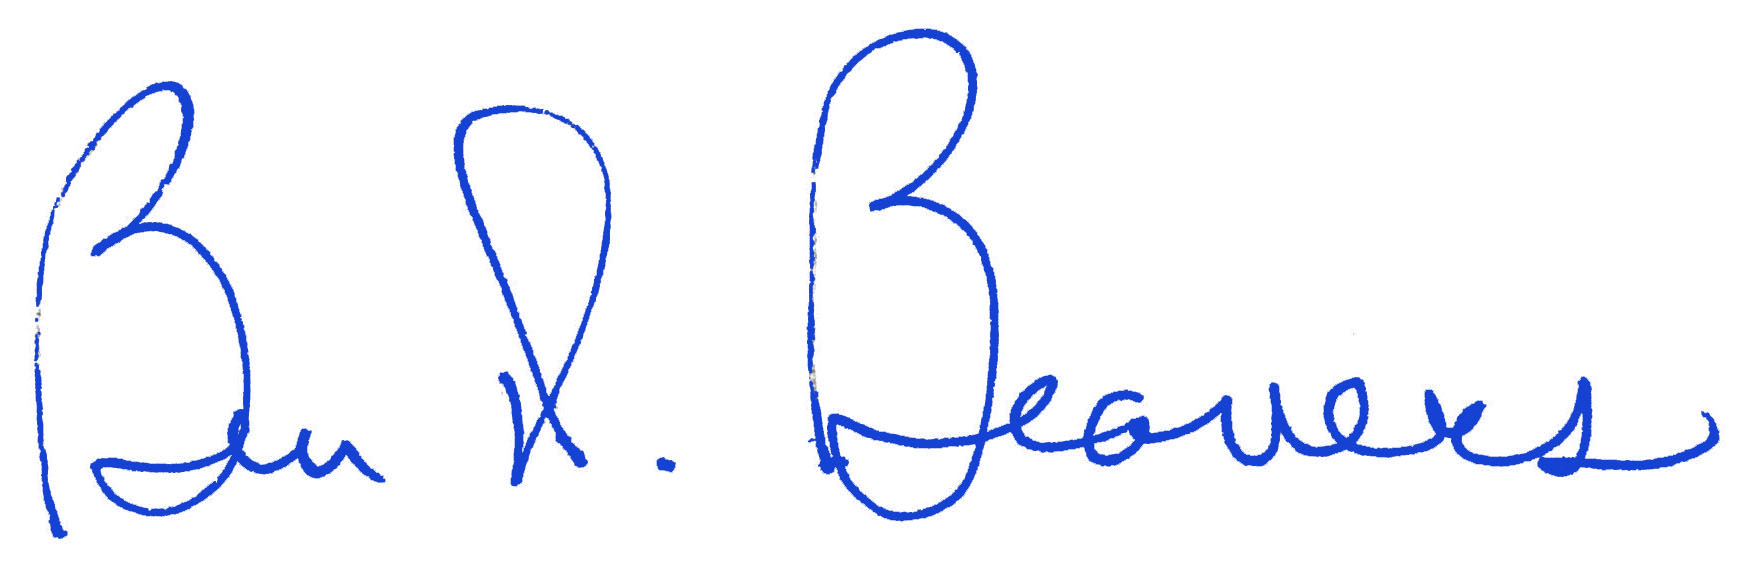 Ben R. Beavers